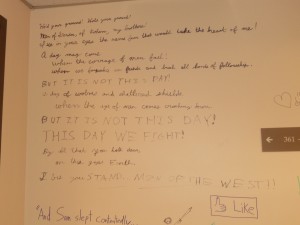 Hold your ground! Hold your ground!
Men of Gondor, of Rohan, my brothers!
I see in your eyes the same fear that would take the heart of me!
A day may come
when the courage of men fail
when we forsake our friends and break all bonds of fellowship
BUT IT IS NOT THIS DAY!
A day of wolves and shattered shields
when the age of men comes crashing down
BUT IT IS NOT THIS DAY!
THIS DAY WE FIGHT!
By all that you hold dear
on this good Earth
I bid you STAND, MEN OF THE WEST!!
"And Sam slept contentedly
Like
361